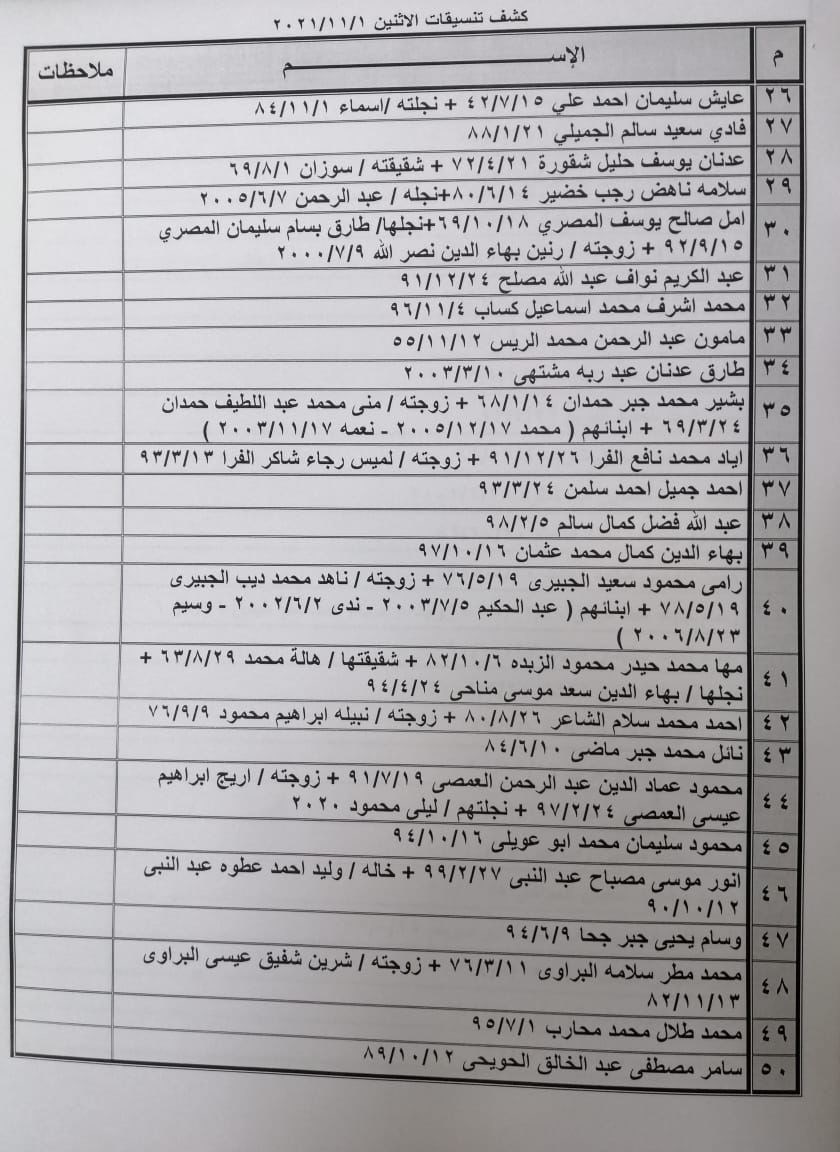 كشف تنسيقات الاثنين ٢٠٢١/١١/١
م الإســـــــــم ملاحظات
٢٦ عايش سليمان احمد علي ٤٢/٧/١٥ + نجلته /اسماء ٨٤/١١/١
٢٧ فادي سعيد سالم الجميلي ٨٨/١/٢١
٢٨ عدنان يوسف حليل شقورة ٧٢/٤/٢١ + شقيقته / سوزان ٦٩/٨/١
٢٩ سلامه ناهض رجب خضير ٨٠/٦/١٤+نجله / عبد الرحمن ٢٠٠٥/٦/٧
٣٠ امل صالح يوسف المصري ٦٩/١٠/١٨+نجلها/ طارق بسام سليمان المصري
٩٢/٩/١٥ + زوجته / رنين بهاء الدين نصر الله ٢٠٠٠/٧/٩
٣١ عبد الكريم نواف عبد الله مصلح ٩١/١٢/٢٤
٣٢ محمد اشرف محمد اسماعيل كساب ٩٦/١١/٤
٣٣ مامون عبد الرحمن محمد الريس ٥٥/١١/١٢
٣٤ طارق عدنان عبد ربه مشتهى ٢٠٠٣/٣/١٠
٣٥ بشير محمد جبر حمدان ٦٨/١/١٤ + زوجته / منى محمد عبد اللطيف حمدان
٦٩/٣/٢٤ + ابنائهم ( محمد ٢٠٠٥/١٢/١٧ - نعمه ٢٠٠٣/١١/١٧ )
٣٦ اياد محمد نافع الفرا ٩١/١٢/٢٦ + زوجته / لميس رجاء شاكر الفرا ٩٣/٣/١٣
٣٧ احمد جميل احمد سلمن ٩٣/٣/٢٤
٣٨ عبد الله فضل كمال سالم ٩٨/٢/٥
٣٩ بهاء الدين كمال محمد عثمان ٩٧/١٠/١٦
٤٠ رامى محمود سعيد الجبيرى ٧٦/٥/١٩ + زوجته / ناهد محمد ديب الجبيرى
٧٨/٥/١٩ + ابنائهم ( عبد الحكيم ٢٠٠٣/٧/٥ - ندى ٢٠٠٢/٦/٢ - وسيم
٢٠٠٦/٨/٢٣ )
٤١ مها محمد حيدر محمود الزبده ٨٢/١٠/٦ + شقيقتها / هالة محمد ٦٣/٨/٢٩ +
نجلها / بهاء الدين سعد موسى مناحى ٩٤/٤/٢٤
٤٢ احمد محمد سلام الشاعر ٨٠/٨/٢٦ + زوجته / نبيله ابراهيم محمود ٧٦/٩/٩
٤٣ نائل محمد جبر ماضى ٨٤/٦/١٠
٤٤ محمود عماد الدين عبد الرحمن العمصى ٩١/٧/١٩ + زوجته / اريج ابراهيم
عيسى العمصى ٩٧/٢/٢٤ + نجلتهم / ليلى محمود ٢٠٢٠
٤٥ محمود سليمان محمد ابو عويلى ٩٤/١٠/١٦
٤٦ انور موسى مصباح عبد النبى ٩٩/٢/٢٧ + خاله / وليد احمد عطوه عبد النبى
٩٠/١٠/١٢
٤٧ وسام يحيى جبر جحا ٩٤/٦/٩
٤٨ محمد مطر سلامه البراوى ٧٦/٣/١١ + زوجته / شرين شفيق عيسى البراوى
٨٢/١١/١٣
٤٩ محمد طلال محمد محارب ٩٥/٧/١
٥٠ سامر مصطفى عبد الخالق الحويحى ٨٩/١٠/١٢